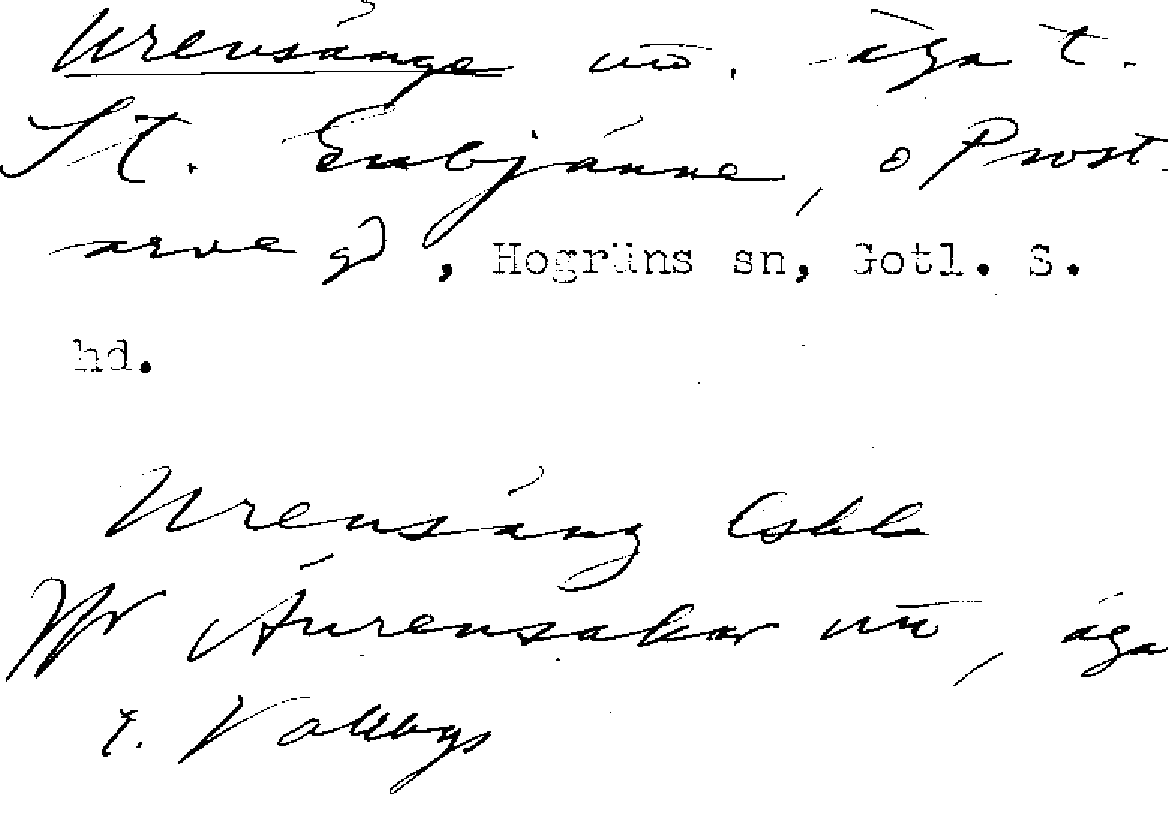 Urensänge uö. äga t.
St. Enbjänne, o Prost-
arve gd, Hogräns sn, Gotl. S.
hd.
Urensäng Eskk
Jfr Äurensakar uö, äga
t. Vallbys